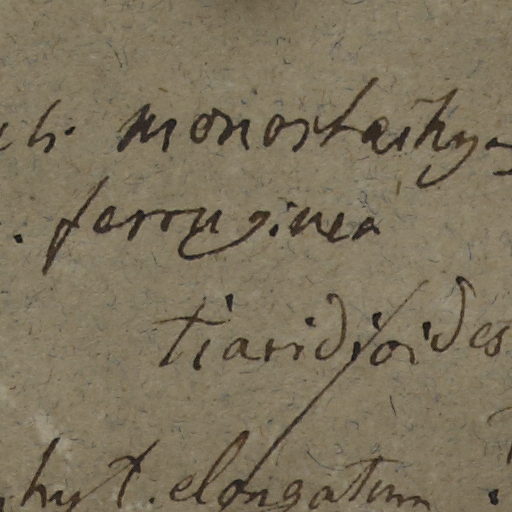 ch. monostachya
. ferruginea
tiaridjoides
hyt. elongatum .